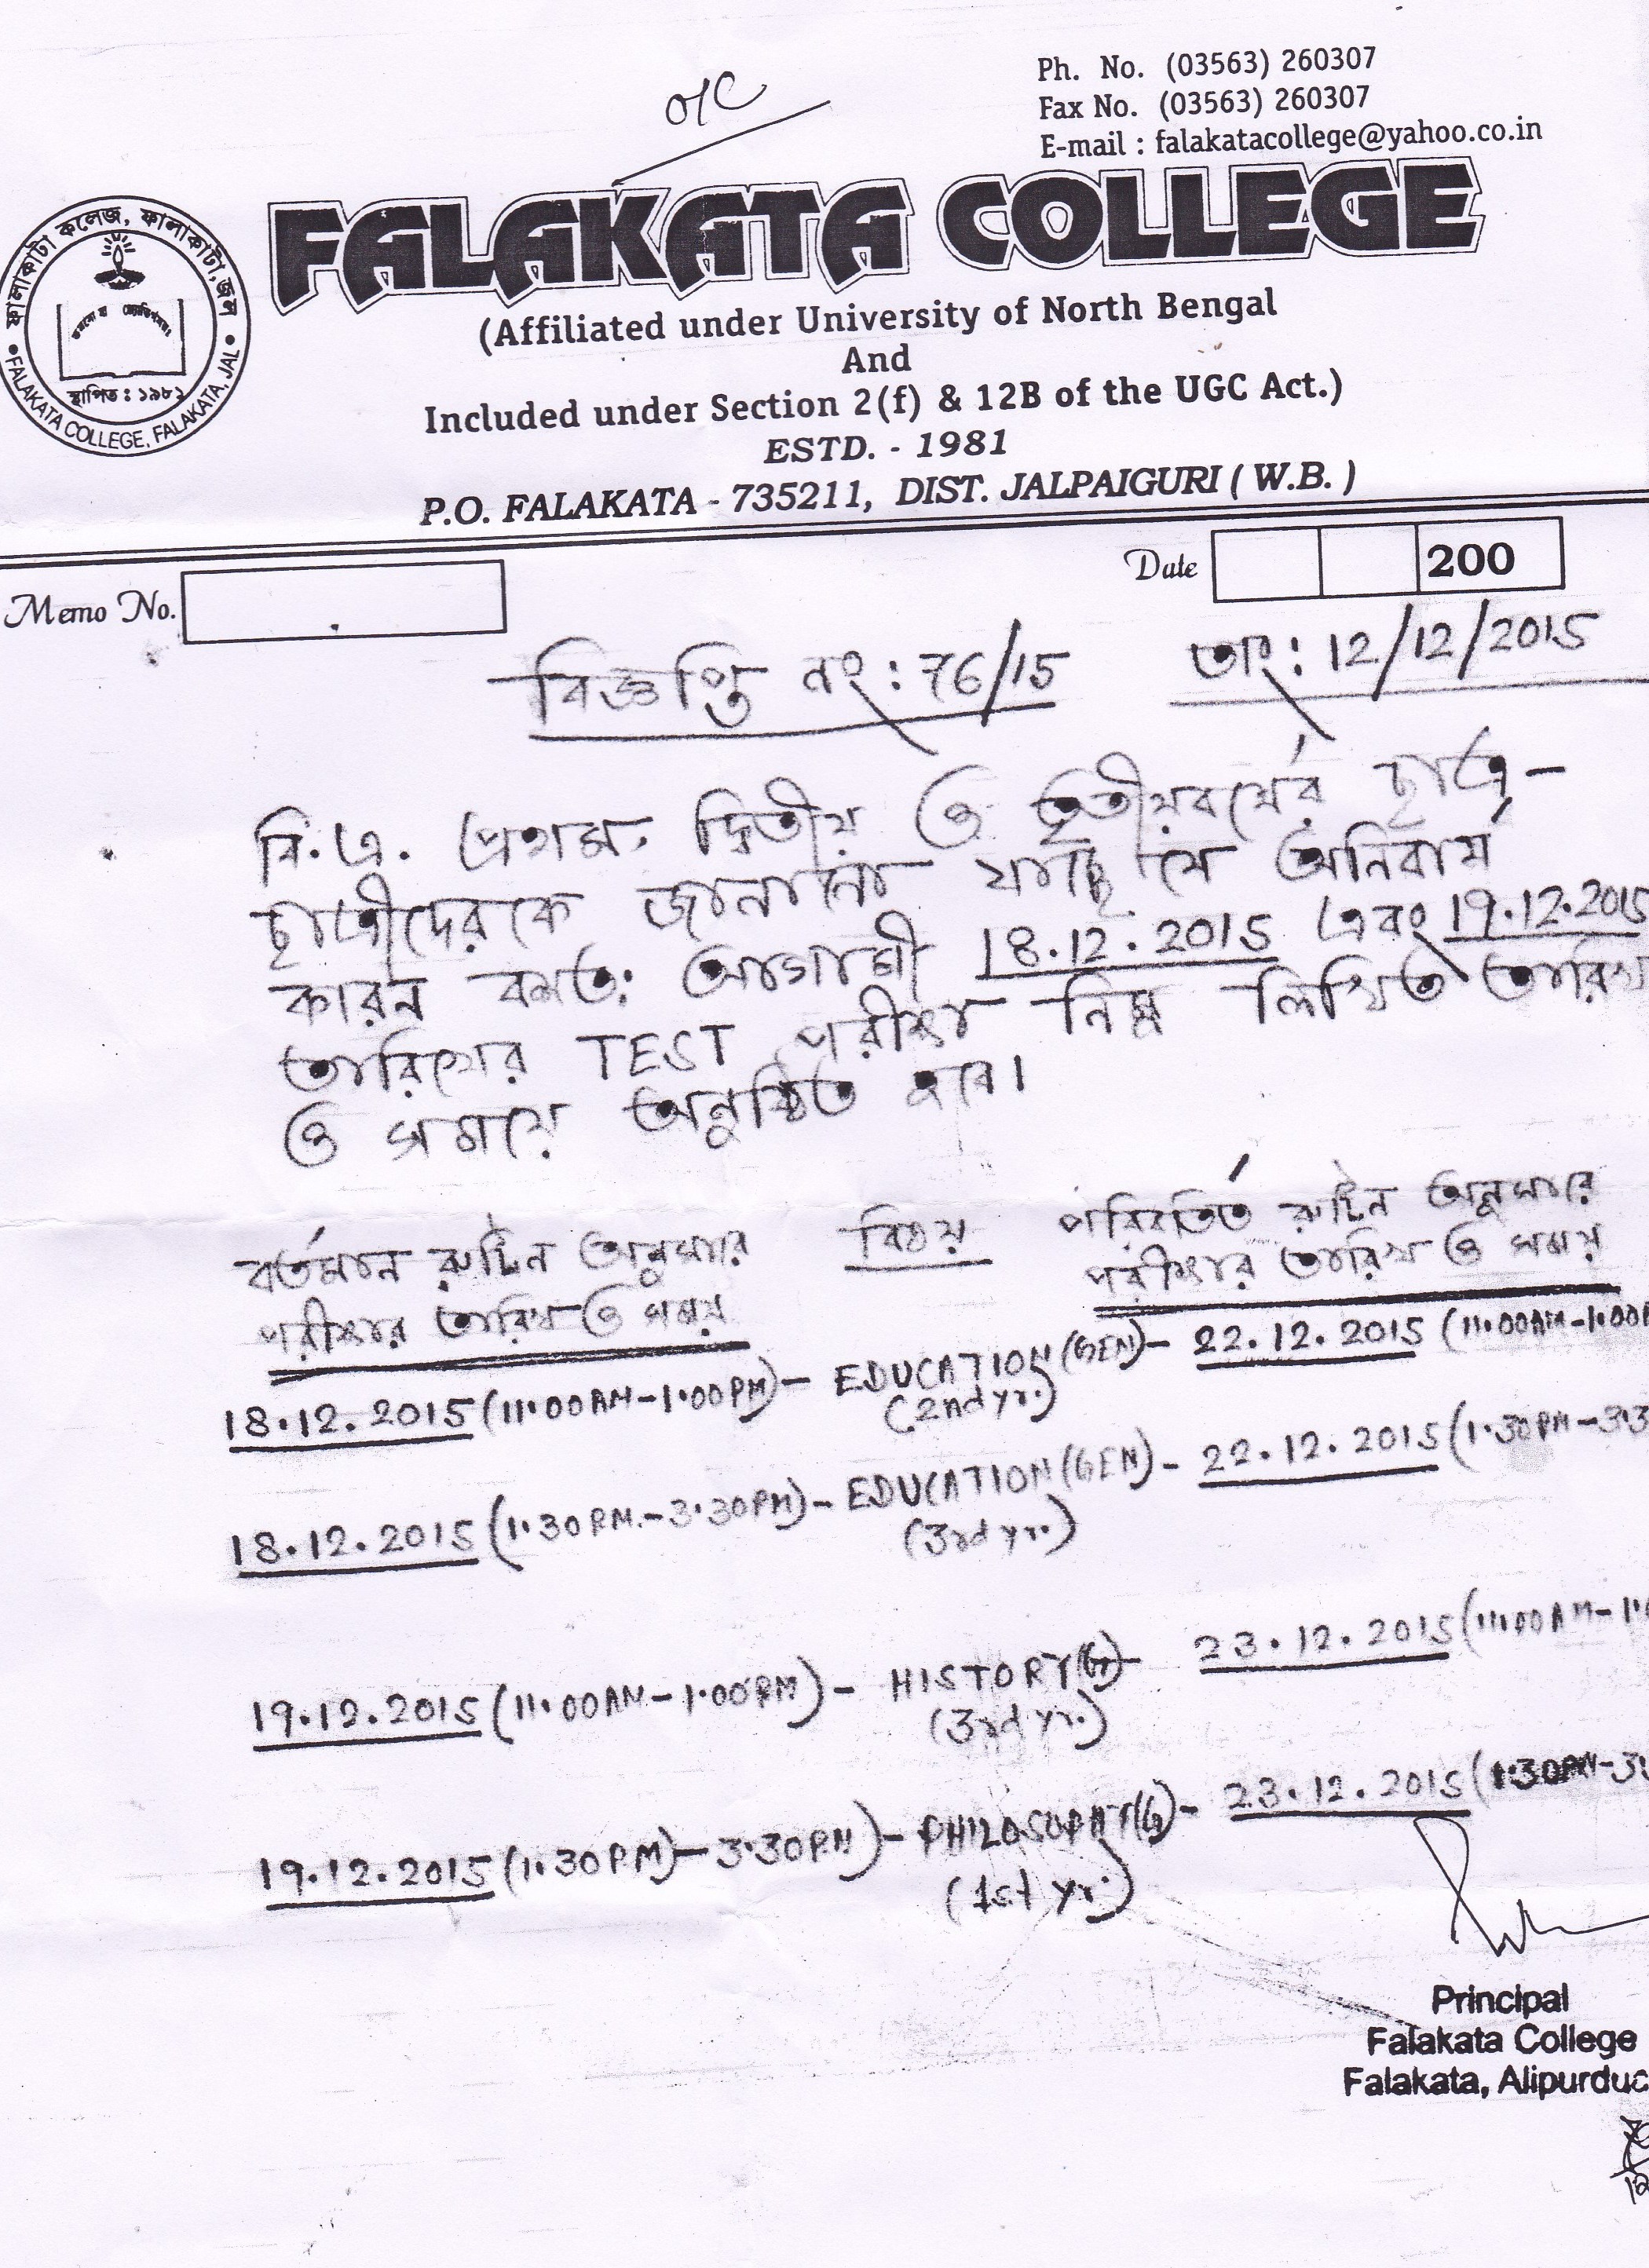 O/C
Ph. No. (03563) 260307
Fax No. (03563) 260307
E-mail : falakatacollege@yahoo.co.in
ফালাকাটা কলেজ, ফালাকাটা, জল
স্থাপিত : ১৯৮১
FALAKATA COLLEGE, FALAKATA, JAL
FALAKATA COLLEGE
(Affiliated under University of North Bengal
And
Included under Section 2(f) & 12B of the UGC Act.)
ESTD. - 1981
P.O. FALAKATA - 735211, DIST. JALPAIGURI ( W.B. )
Memo No.
Date 200
বিজ্ঞপ্তি নং : 76/15 তাং : 12/12/2015
বি.এ. প্রথম, দ্বিতীয় ও তৃতীয়বর্ষের ছাত্র-
ছাত্রীদেরকে জানানো যাচ্ছে যে অনিবার্য
কারন বশতঃ আগামী 18.12.2015 এবং 19.12.2015
তারিখের TEST পরীক্ষা নিম্ন লিখিত তারিখ
ও সময়ে অনুষ্ঠিত হবে।
বর্তমান রুটিন অনুসারে বিষয় পরিবর্তিত রুটিন অনুসারে
পরীক্ষার তারিখ ও সময় পরীক্ষার তারিখ ও সময়
18.12.2015 (11.00AM-1.00PM)- EDUCATION (GEN)- 22.12.2015 (11.00AM-1.00P
(2nd yr.)
18.12.2015 (1.30PM.-3.30PM)- EDUCATION (GEN)- 22.12.2015 (1.30PM-3.3
(3rd yr.)
19.12.2015 (11.00AM-1.00PM)- HISTORY(G)- 23.12.2015 (11.00AM-1.
(3rd yr.)
19.12.2015 (1.30PM)-3.30PM)- PHILOSOPHY(G)- 23.12.2015 (1.30PM-3
(1st yr.)
Principal
Falakata College
Falakata, Alipurduc